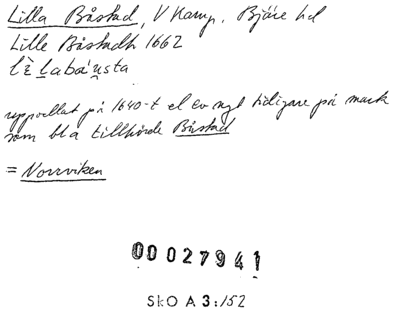 Lilla Båstad, V Karup. Bjäre hd
Lille Båstadh 1662
lè labáusta
upprellat på 1640-t el ev ngt tidigare på mark
som bl a tillhörde Båstad
= Norrviken
00027941
SkO A 3:152